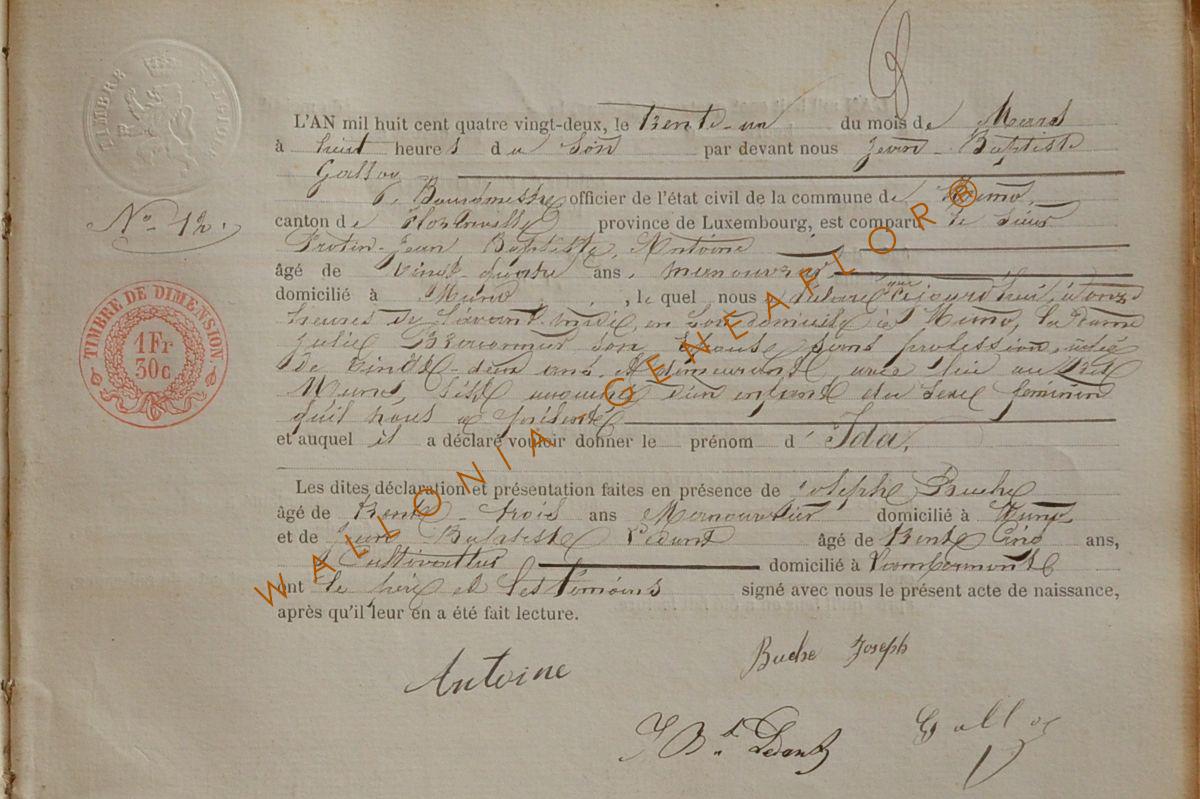 TIMBRE BELGIQUE
L'AN mil huit cent quatre vingt-deux, le Trente-un du mois de Mars
à huit heures du Soir par devant nous Jean-Baptiste
Galloy
Bourgmestre officier de l'état civil de la commune de Muno,
No 12.
canton de Florenville province de Luxembourg, est comparu le sieur
Jean Baptiste, Antoine
âgé de vingt-quatre ans, manouvrier
domicilié à Muno, lequel nous déclare que aujourd'hui, à onze
heures de l'avant-midi, en son domicile à Muno, la Dame
TIMBRE DE DIMENSION
1Fr
30c
Julie son épouse sans profession, âgée
de vingt-deux ans, et demeurant avec lui au dit
Muno, s'est d'un enfant du sexe féminin
qu'il nous a présenté
et auquel il a déclaré vouloir donner le prénom d'Ida,
Les dites déclaration et présentation faites en présence de Joseph Buche
âgé de trente-trois ans Manouvrier domicilié à Muno
et de Jean Baptiste Ledent âgé de trente cinq ans,
Cultivateur domicilié à Lambermont
ont le père et les témoins signé avec nous le présent acte de naissance,
après qu'il leur en a été fait lecture.
Antoine
Buche Joseph
J Bte Ledent
Galloy
WALLONIA-GENEAFLOR®